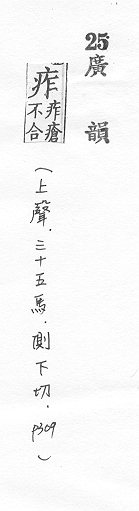 25
廣韻
痄痄瘡不合
(上聲.三十五馬.側下切.P309)